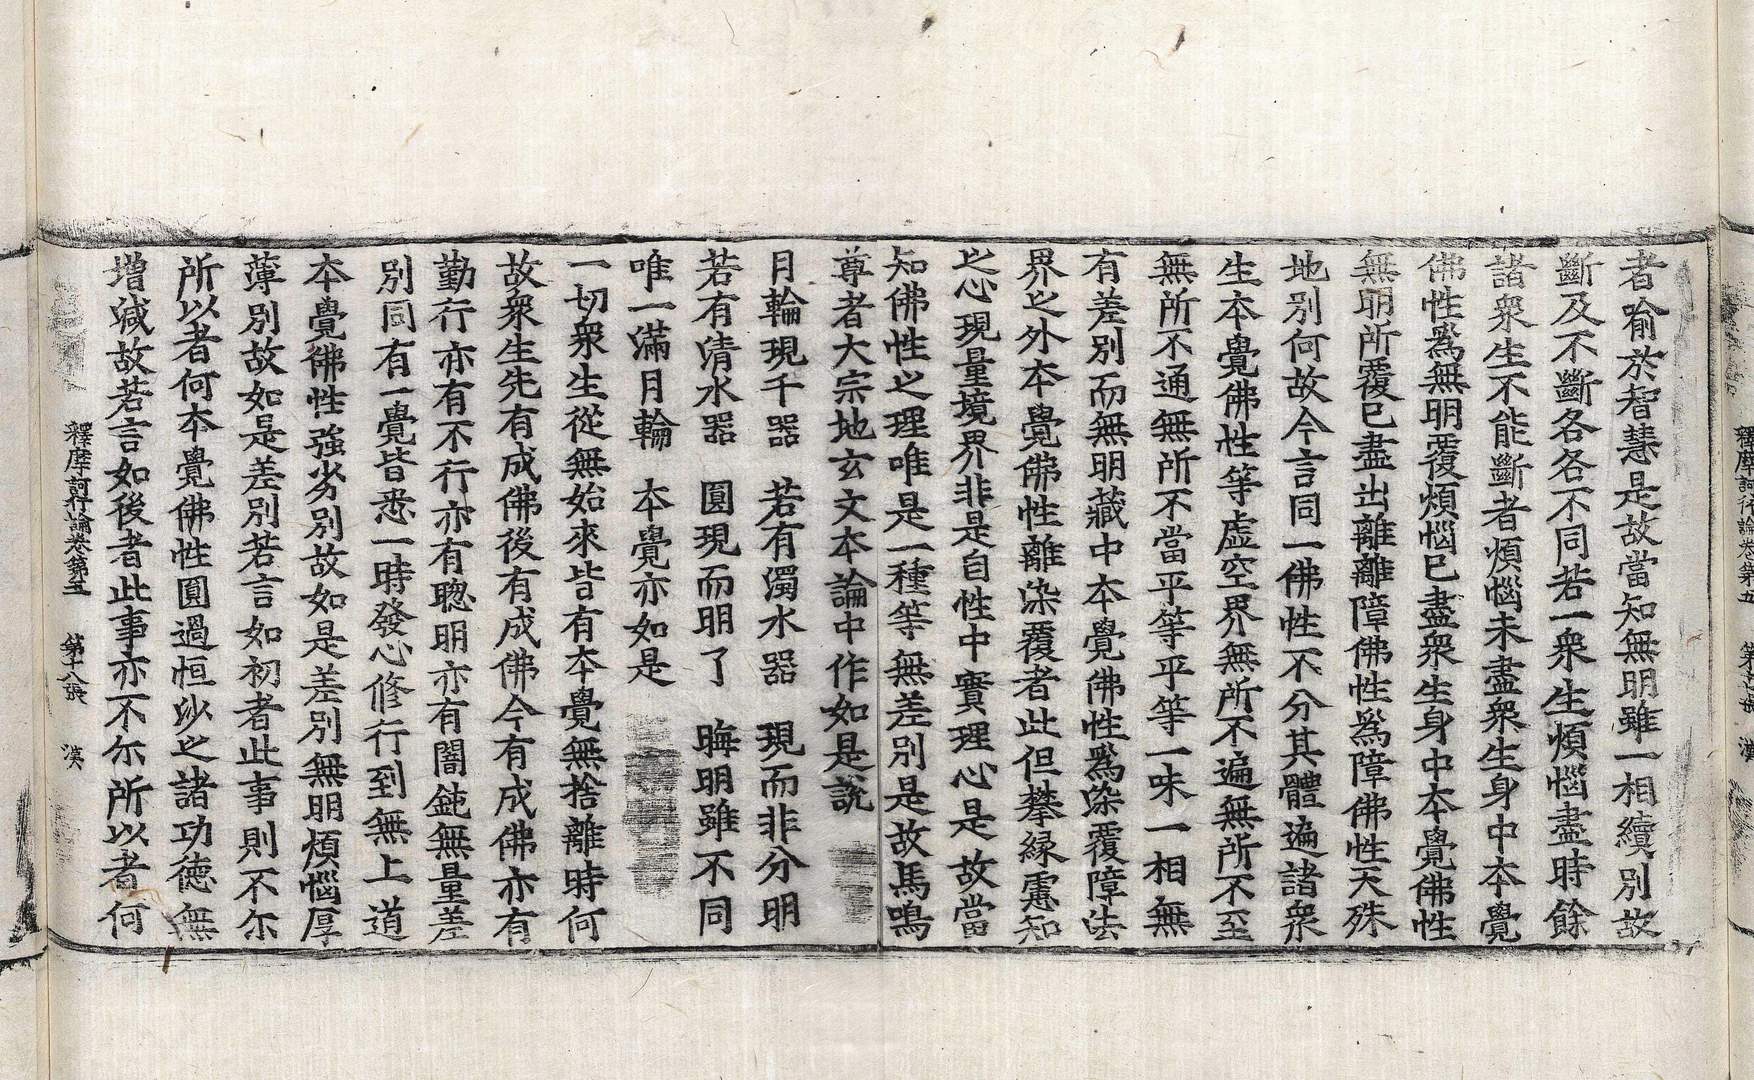 者喻於智慧是故當知無明雖一相續別故
斷及不斷各各不同若一衆生煩惱盡時餘
諸衆生不能斷者煩惱未盡衆生身中本覺
佛性爲無明覆煩惱已盡衆生身中本覺佛性
無明所覆已盡出離離障佛性爲障佛性天殊
地別何故今言同一佛性不分其體遍諸衆
生本覺佛性等虛空界無所不遍無所不至
無所不通無所不當平等平等一味一相無
有差別而無明藏中本覺佛性爲染覆障法
界之外本覺佛性離染覆者此但攀緣慮知
之心現量境界非是自性中實理心是故當
知佛性之理唯是一種等無差別是故馬鳴
尊者大宗地玄文本論中作如是說
月輪現千器　若有濁水器　現而非分明
若有清水器　圓現而明了　晦明雖不同
唯一滿月輪　本覺亦如是
一切衆生從無始來皆有本覺無捨離時何
故衆生先有成佛後有成佛今有成佛亦有
勤行亦有不行亦有聰明亦有闇鈍無量差
別同有一覺皆悉一時發心修行到無上道
本覺佛性強劣別故如是差別無明煩惱厚
薄別故如是差別若言如初者此事則不尒
所以者何本覺佛性圓過恒沙之諸功德無
增減故若言如後者此事亦不尒所以者何
釋摩訶衍論卷第五　第十八張　漢